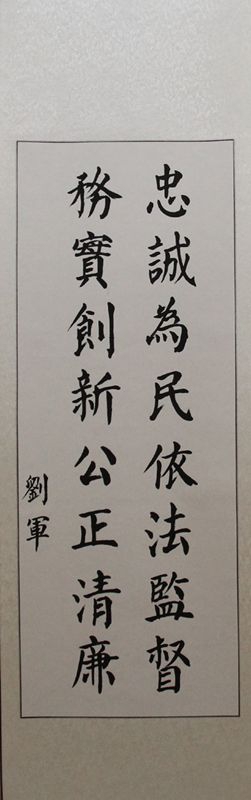 忠誠為民依法監督
務實創新公正清廉
劉軍